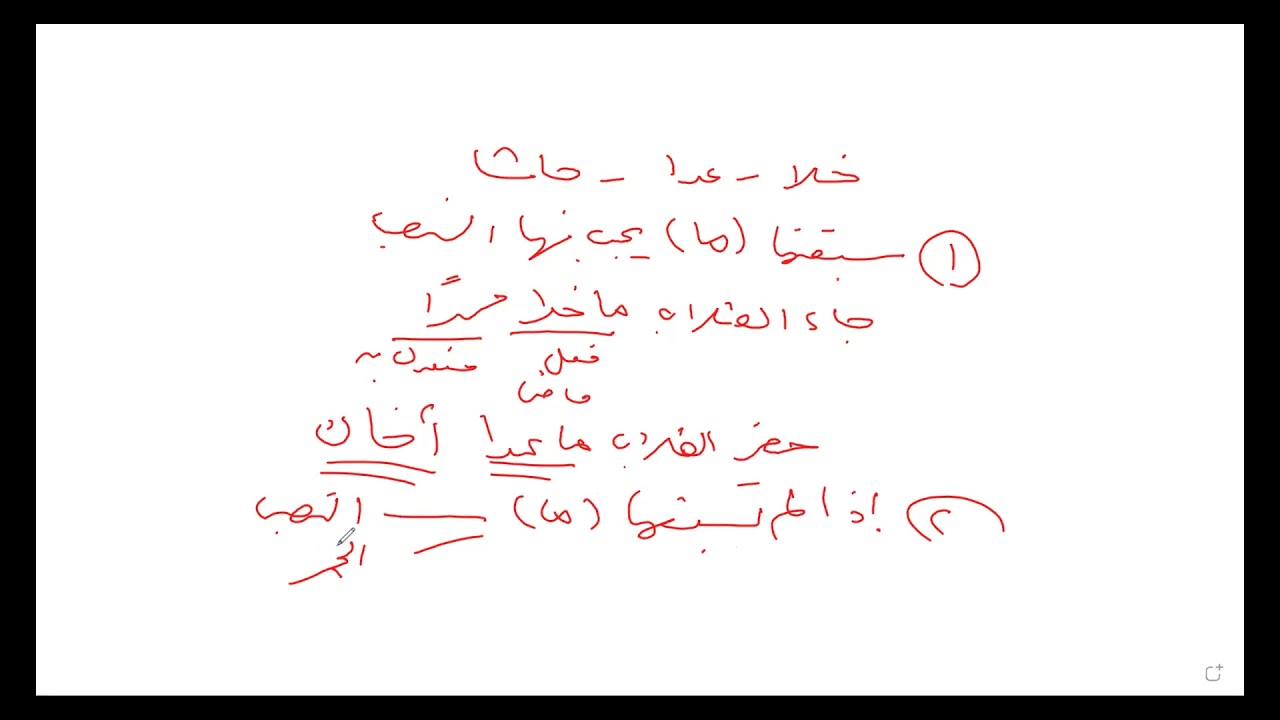 خلا - عدا - حاشا
① سبقتها (ما) يجب نها النصب
جاء الطلاب ما خلا محمدًا
فعل مفعول به
ماضي
حضر الطلاب ما عدا أخاك
② إذا لم تسبقها (ما) النصب
الجر